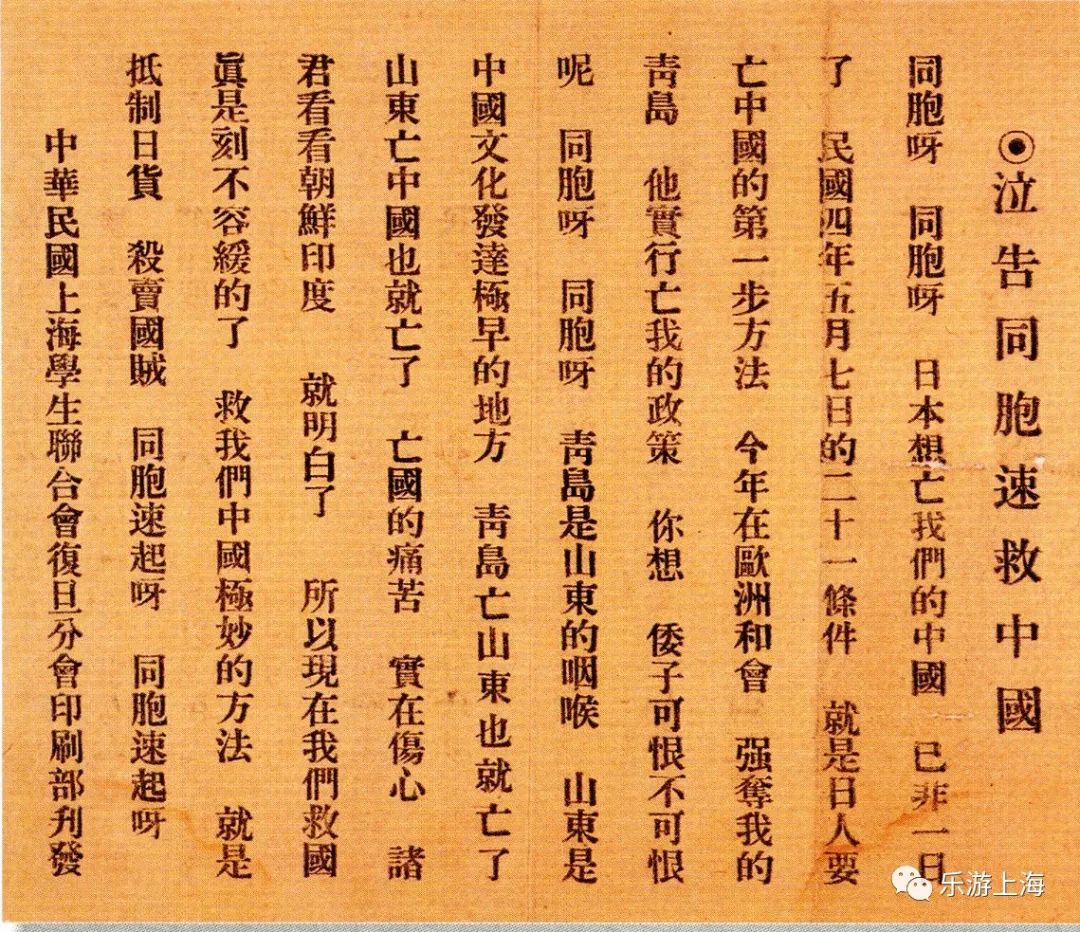 ◉泣告同胞速救中國
同胞呀　同胞呀　日本想亡我們的中國　已非一日
了　民國四年五月七日的二十一條件　就是日人要
亡中國的第一步方法　今年在歐洲和會　强奪我的
靑島　他實行亡我的政策　你想　倭子可恨不可恨
呢　同胞呀　同胞呀　靑島是山東的咽喉　山東是
中國文化發達極早的地方　靑島亡山東也就亡了
山東亡中國也就亡了　亡國的痛苦　實在傷心　諸
君看看朝鮮印度　就明白了　所以現在我們救國
眞是刻不容緩的了　救我們中國極妙的方法　就是
抵制日貨　殺賣國賊　同胞速起呀　同胞速起呀
中華民國上海學生聯合會復旦分會印刷部刋發
乐游上海